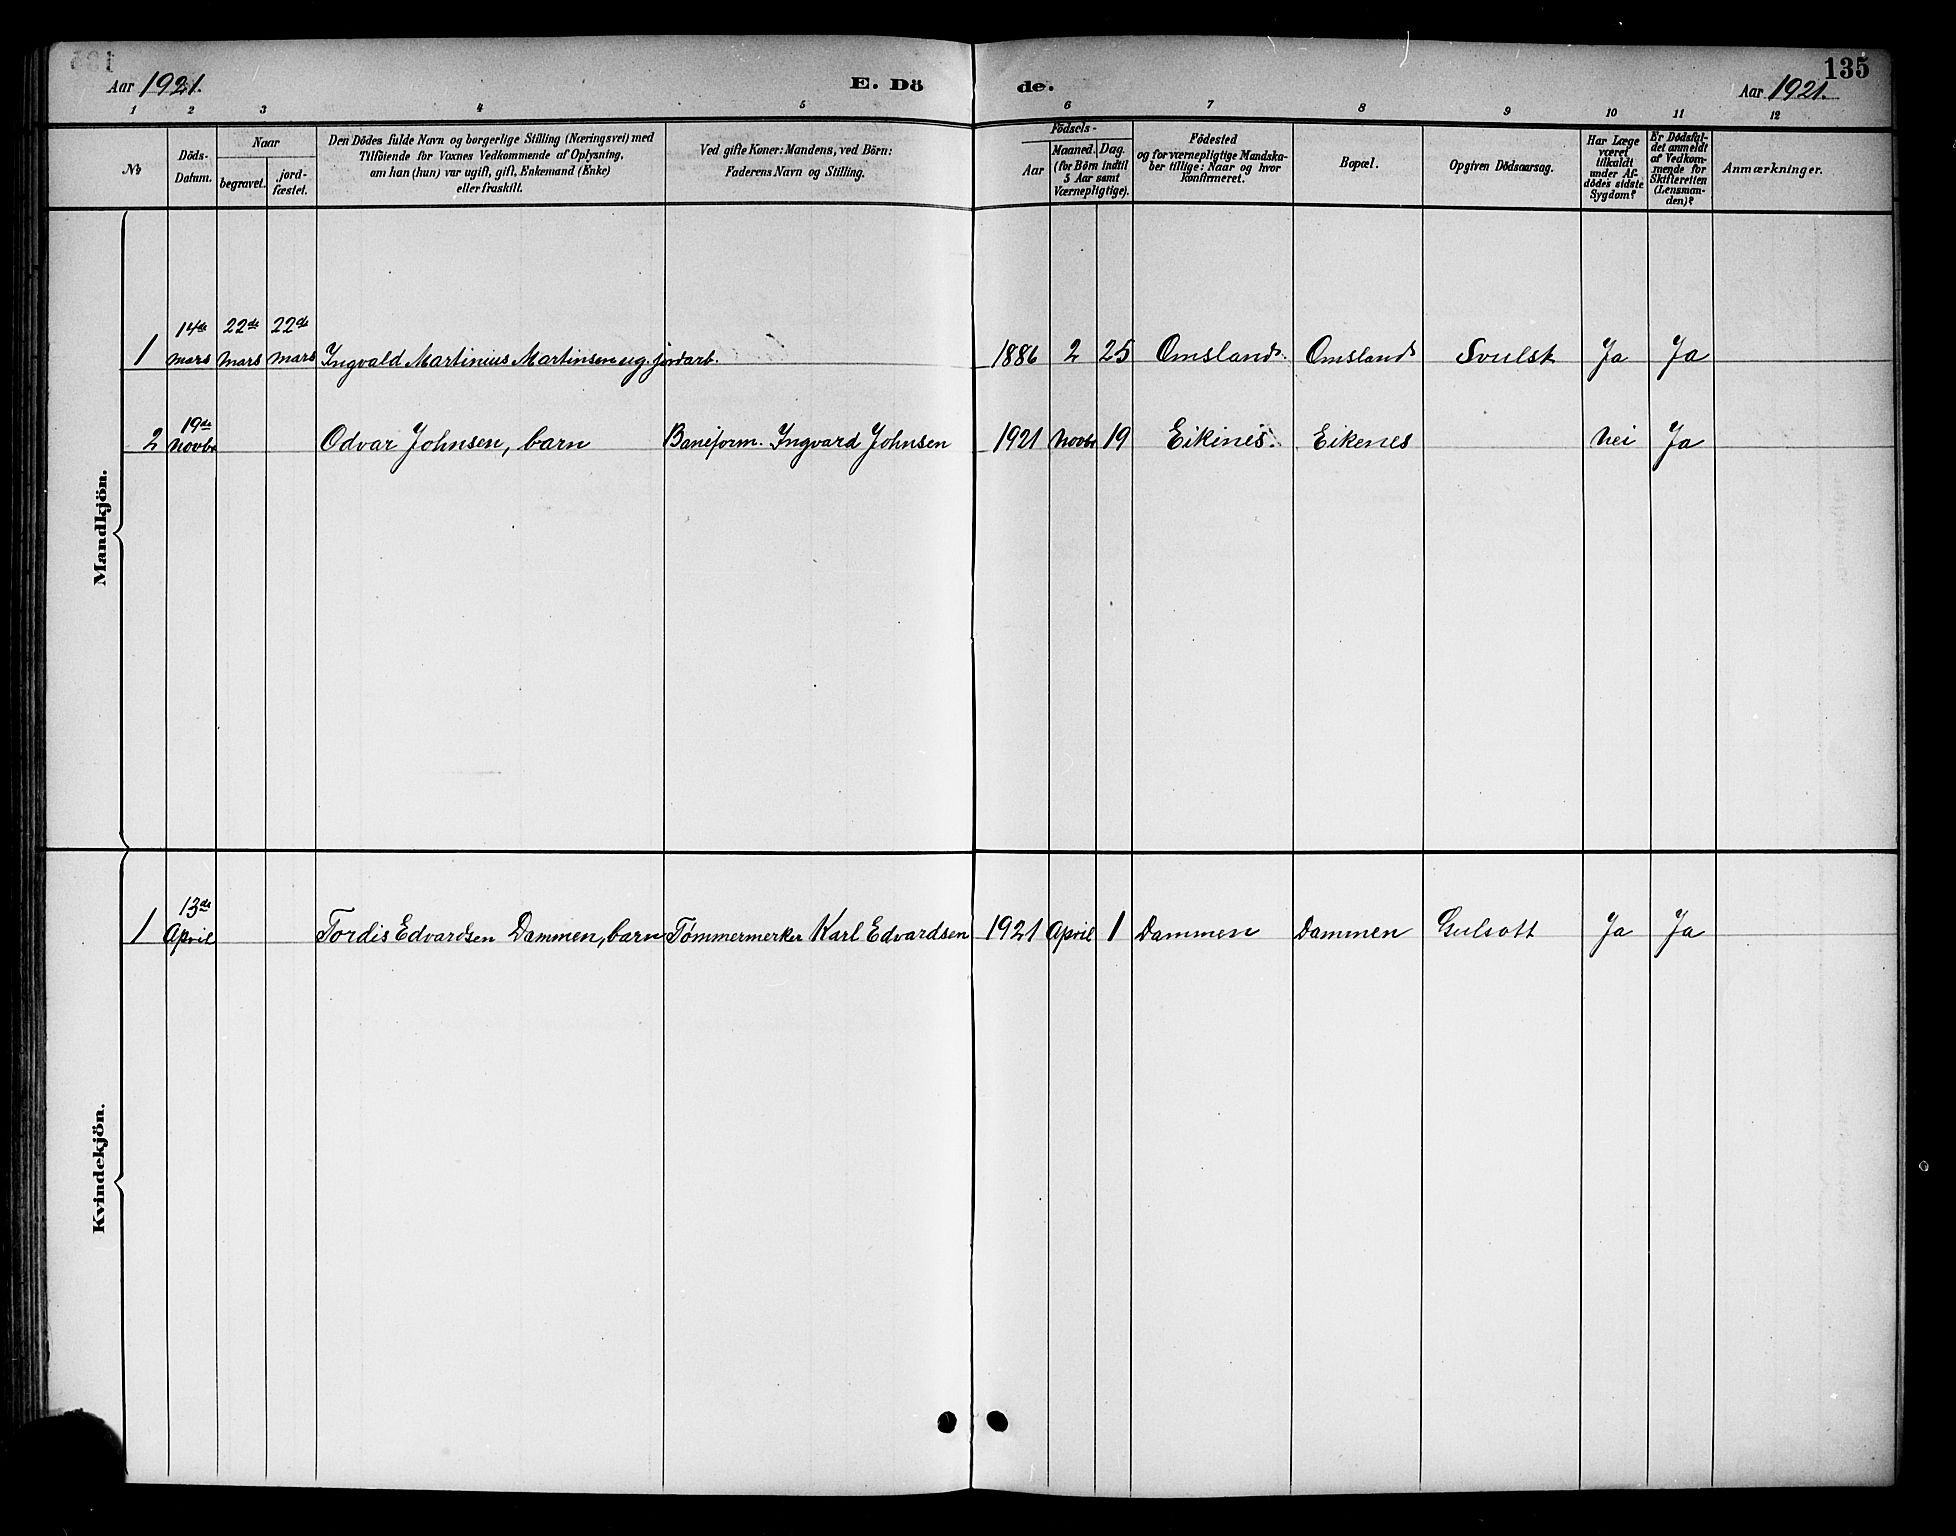 Aar 1921. E. Dö de. Aar 1921. 135
1 2 3 4 5 6 7 8 9 10 11 12
No
Döds-
Datum.
Naar
begravet.
jord-
fæstet.
Den Dödes fulde Navn og borgerlige Stilling (Næringsvei) med
Tilföiende for Voxnes Vedkommende af Oplysning,
om han (hun) var ugift, gift, Enkemand (Enke)
eller fraskilt.
Ved gifte Koner: Mandens, ved Börn:
Faderens Navn og Stilling.
Födsels-
Aar
Maaned. Dag.
(for Börn indtil
5 Aar samt
Værnepligtige).
Födested
og for værnepligtige Mandska-
ber tillige: Naar og hvor
konfirmeret.
Bopæl.
Opgiven Dödsaarsag.
Har Læge
været
tilkaldt
under Af-
dödes sidste
Sygdom?
Er Dödsfal-
det anmeldt
af Vedkom-
mende for
Skifteretten
(Lensman-
den)?
Anmærkninger.
Mandkjön.
14de 22de 22de
1 mars mars mars Ingvald Martinius Martinsen ug. jordarb. 1886 2 25 Omsland Omsland Svulst Ja Ja
19de
2 Novbr Odvar Johnsen, barn Baneform. Ingvard Johnsen 1921 Novbr 19 Eikines. Eikenes Nei Ja
Kvindekjön.
13de
1 April Tordis Edvardsen Dammen, barn Tømmermerker Karl Edvardsen 1921 April 1 Dammen Dammen Gulsott Ja Ja